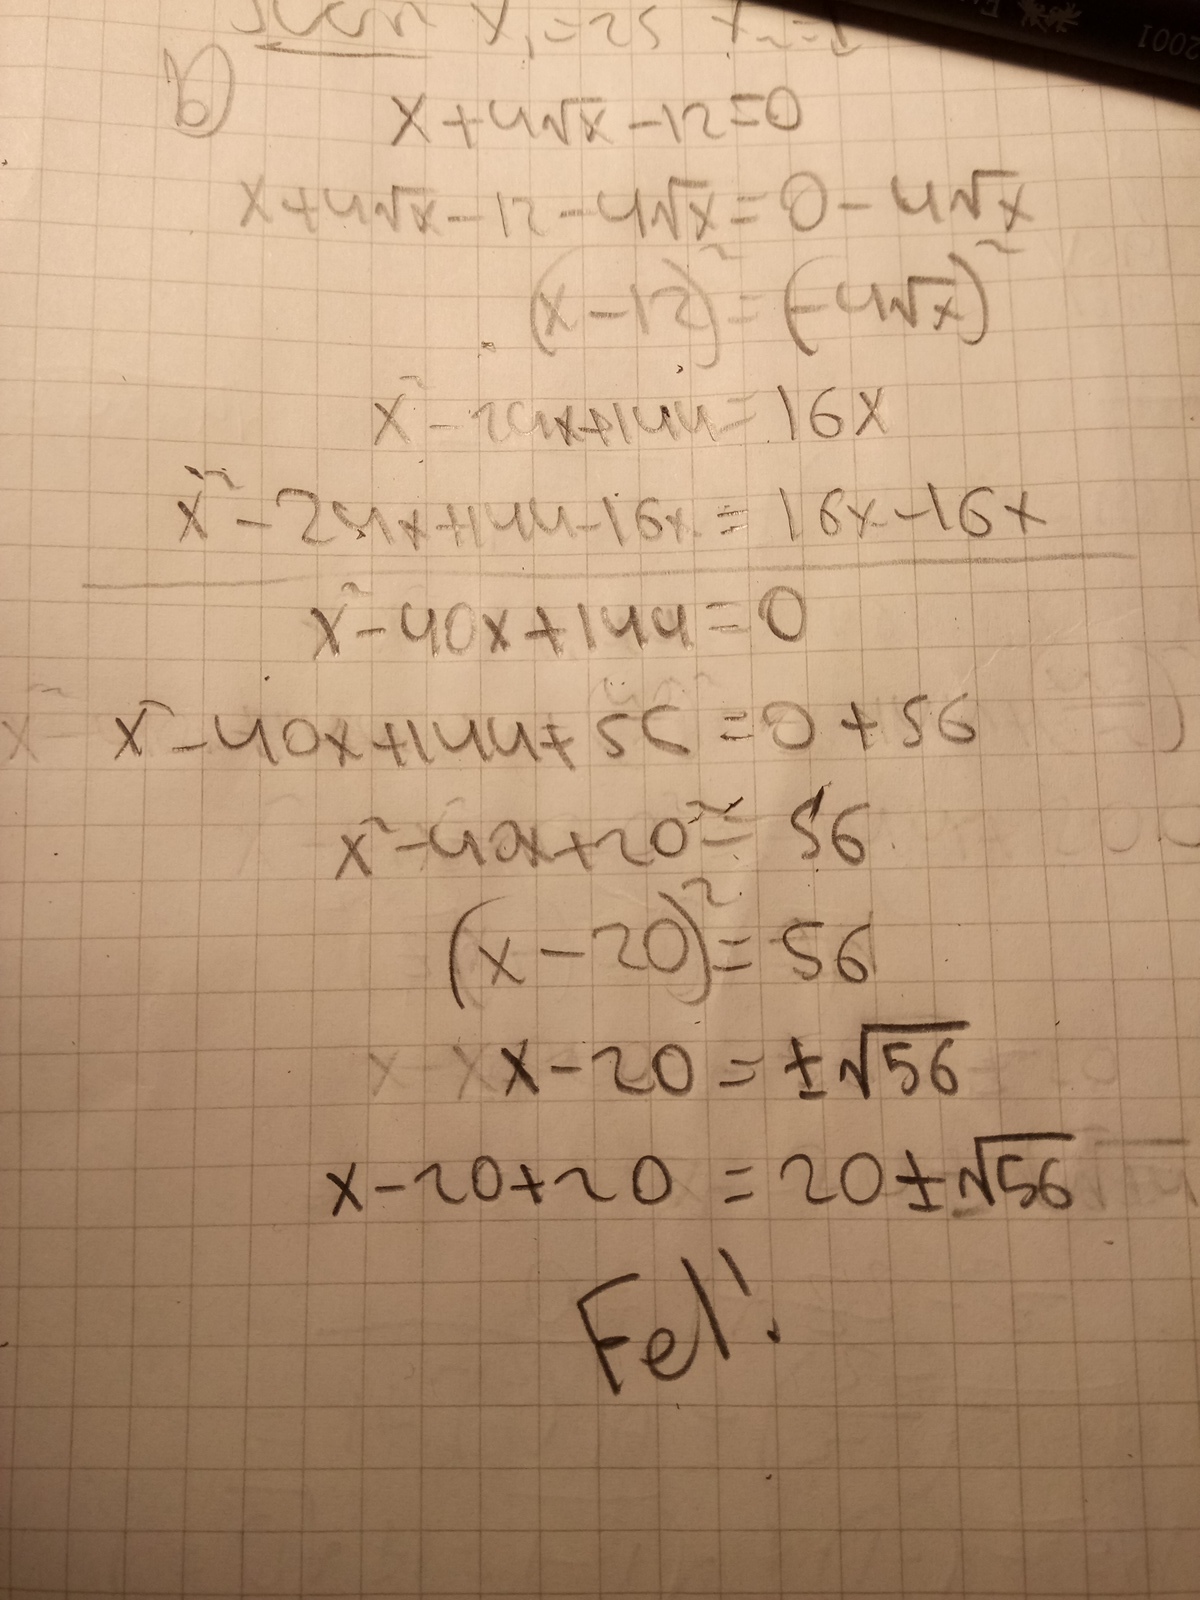 Svar: x₁=25 x₂=1
a)
x+4√x-12=0
x+4√x-12-4√x=0-4√x
(x-12)²=(-4√x)²
x²-24x+144=16x
x²-24x+144-16x=16x-16x
x²-40x+144=0
x²-40x+144+56=0+56
x²-40x+20²=56
(x-20)²=56
x-20=±√56
x-20+20=20±√56
Fel!
2001